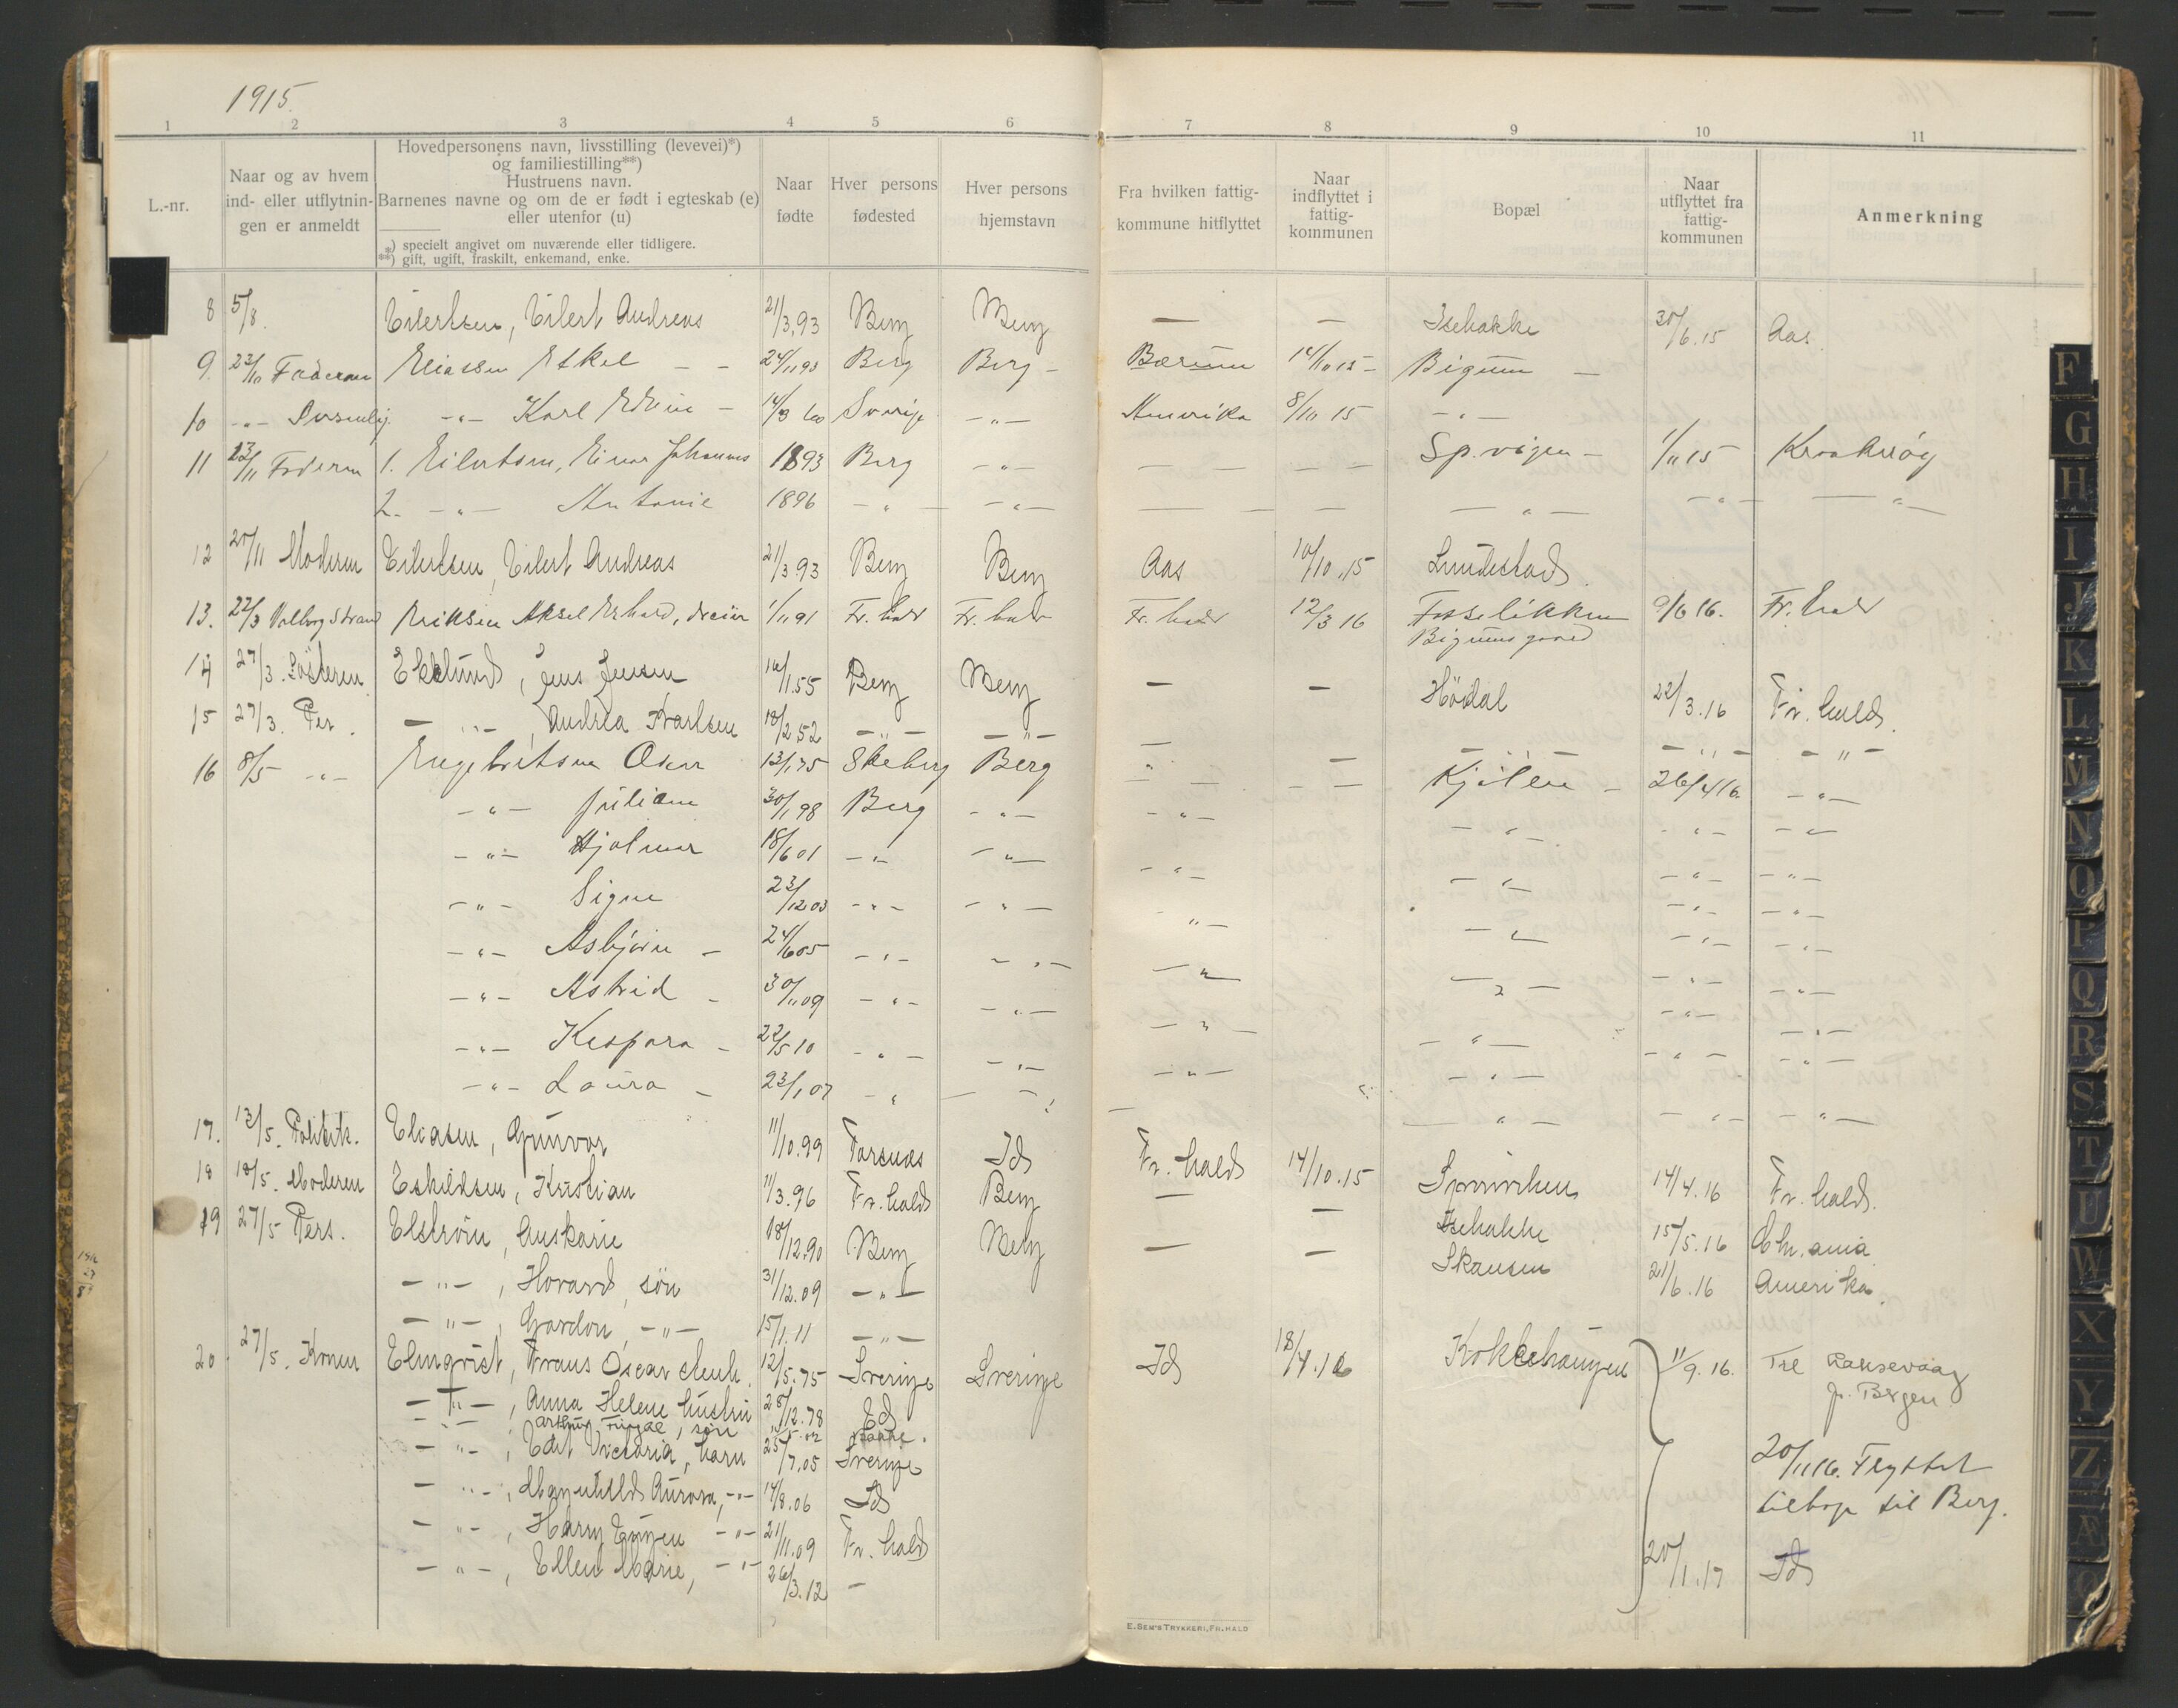 1915.
1 2 3 4 5 6 7 8 9 10 11
L.-nr.
Naar og av hvem
ind- eller utflytnin-
gen er anmeldt
Hovedpersonens navn, livsstilling (levevei)*)
og familiestilling**)
Hustruens navn.
Barnenes navne og om de er født i egteskab (e)
eller utenfor (u)
*) specielt angivet om nuværende eller tidligere.
**) gift, ugift, fraskilt, enkemand, enke.
Naar
fødte
Hver persons
fødested
Hver persons
hjemstavn
Fra hvilken fattig-
kommune hitflyttet
Naar
indflyttet i
fattig-
kommunen
Bopæl
Naar
utflyttet fra
fattig-
kommunen
Anmerkning
8 5/8. Eilertsen, Eilert Andreas 21/3.93 Berg Berg — — Isebakke 30/6.15 Aas.
9. 23/10 Faderen Eliassen Eskel - - 24/11 93 Berg Berg - Bærum 14/10 15 - Bigum -
10 -"- Personlig. -"- Karl Edvin - 14/3 60 Sverige -"- Amerika 8/10 15 -"-
11 23/11 Faderen 1. Eilertsen, Einar Johannes 1893 Berg -"- — — — — Sp.vigen - 1/11 15 Kraakerøy
2. -"- Antonie 1896 -"- -"- — — — -"- -"- -"-
12 20/11 Moderen Eilertsen, Eilert Andreas 21/3.93 Berg Berg Aas 10/10.15 Lundestad.
13. 22/3 Valborg Strand Eriksen Aksel Erhard, dreier 1/11 91 Fr.hald Fr.hald Fr.hald 12/3 16 Fosseløkken 9/6 16. Fr.hald
Bigumsgaard
14 27/3. Søsteren Eklund, Jens Jensen 16/1.55 Berg Berg — — Hödal 22/3.16 Fr.hald.
15 27/3. Per. -"-, Andrea Karlsen 18/2.52 -"- -"- — — -"- -"- -"-
16 8/5 -"- Engebretsen Oskar 13/1 75 Skeberg Berg -"- — — Kjølen - 26/4 16. -"-
-"- Juliane 30/1 98 Berg -"- -"- -"- -"- -"-
-"- Hjalmar 18/6 01 -"- -"- -"- -"- -"- -"-
-"- Signe 23/12 03 -"- -"- -"- -"- -"- -"-
-"- Asbjørn - 24/6 05 -"- -"- -"- -"- -"- -"-
-"- Astrid - 30/11 09 -"- -"- -"- -"- -"- -"-
-"- Kaspara - 22/5 10 -"- -"- -"- -"- -"- -"-
-"- Laura - 23/1 07 -"- -"- — -"- -"- -"-
17. 13/5. Politik. Eliasen, Gunvor 11/10.99 Torsnes Id Fr.hald 14/10.15 14/4.16 Fr.hald.
18 18/5. Moderen Eskildsen, Kristian 11/3.96 Fr.hald Berg — — Isebakke 15/5.16 Chr.ania
19 27/5 Pers. Elström, Anskarie 18/12.90 Berg Berg — — Skansen 21/6.16 Amerika.
-"-, Hovard, sön 31/12.09 -"-
-"-, Gordon, -"- 15/1.11 -"-
20. 27/5. Konen Elmqvist, Frans Oscar 12/5.75 Sverige Sverige Id 18/4.16 Kokkehaugen 11/9.16. Til Laksevaag
p. Bergen
-"-, Anna Helene hustru 28/12.78 Id
-"-, Arthur Fingal, søn
-"-, Edit Victoria, barn 25/7.05 Sverige
20/11 16. Flyttet
tilbage til Berg.
-"-, Magnhild Aurora, -"- 14/8.06 Id
-"-, Harry Eugen -"- 21/11.09 Fr.hald
-"-, Ellen Marie, -"- 26/3.12 — 20/1.17 Id
E. SEM'S TRYKKERI, FR.HALD
F
G
H
I
J
K
L
M
N
O
P
Q
R
S
T
U
W
X
Y
Z
Æ
Ø